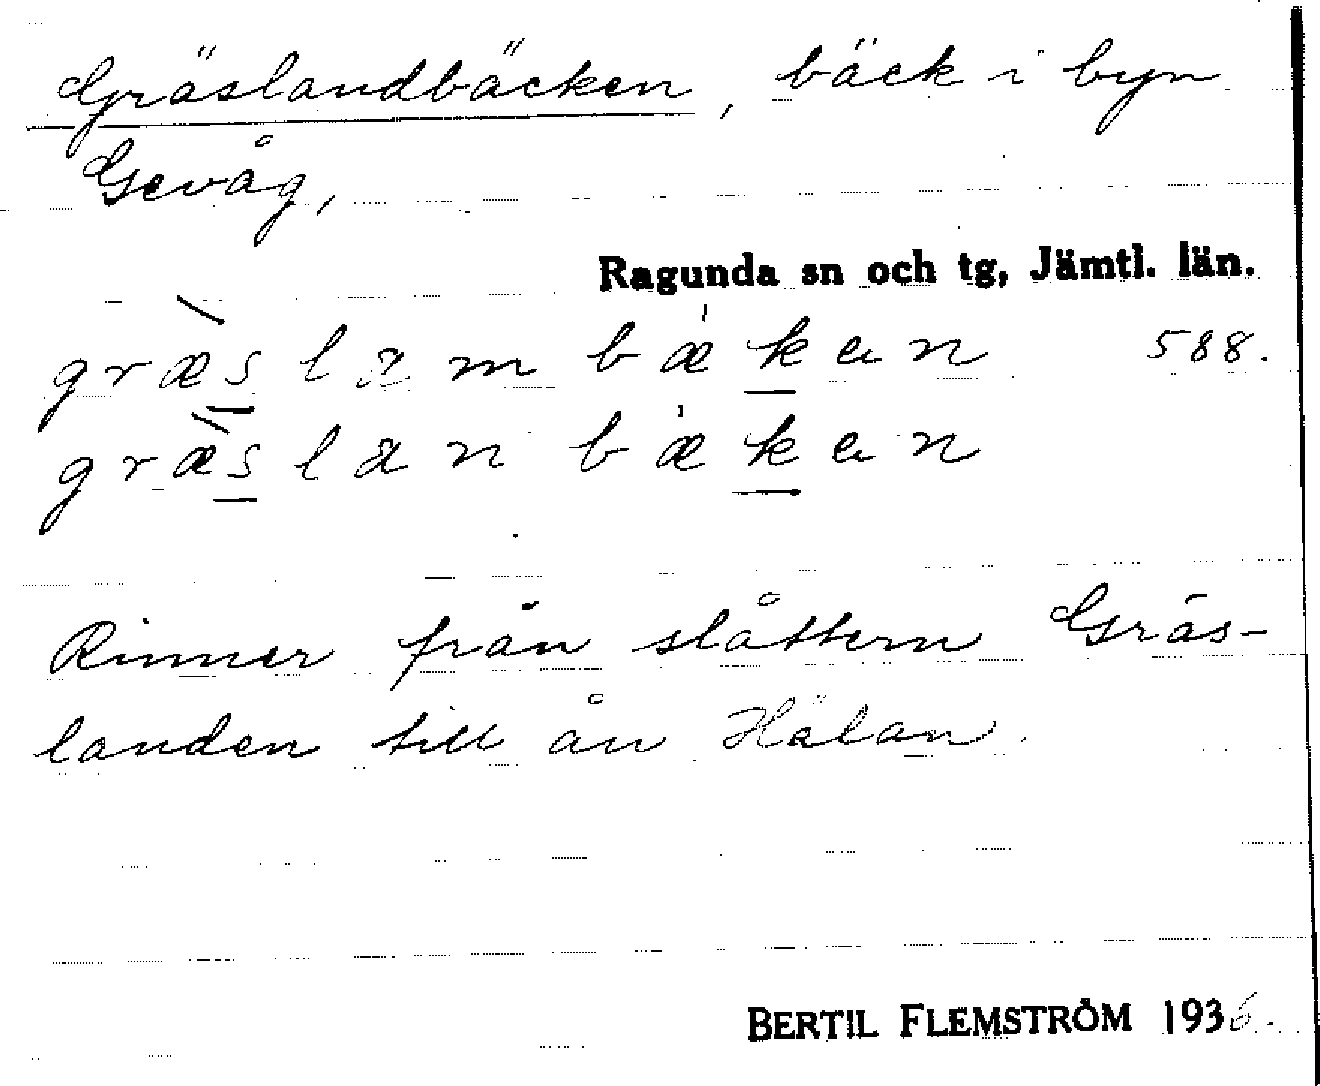 Gräslandbäcken, bäck i byn
Gevåg,
Ragunda sn och tg, Jämtl. län.
græs lam bækan 588.
græs lan bækan
Rinner från slåttern Gräs-
landen till ån Hälan.
BERTIL FLEMSTRÖM 1936.